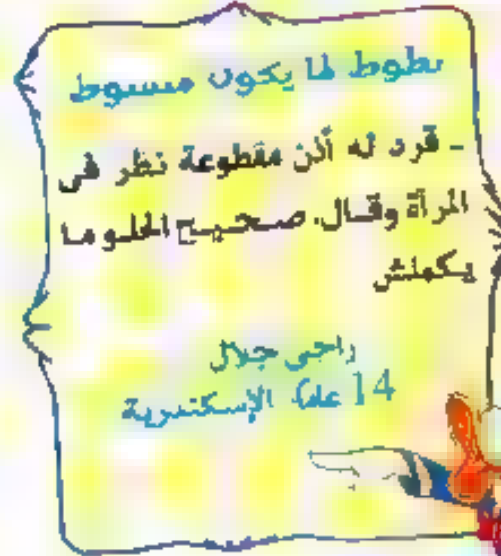 بطوط لما يكون مبسوط
- قرد له أذن مقطوعة نظر فى
المرآة وقال، صحيح الحلو ما
يكملش
راجى جلال
14 عاماً الإسكندرية